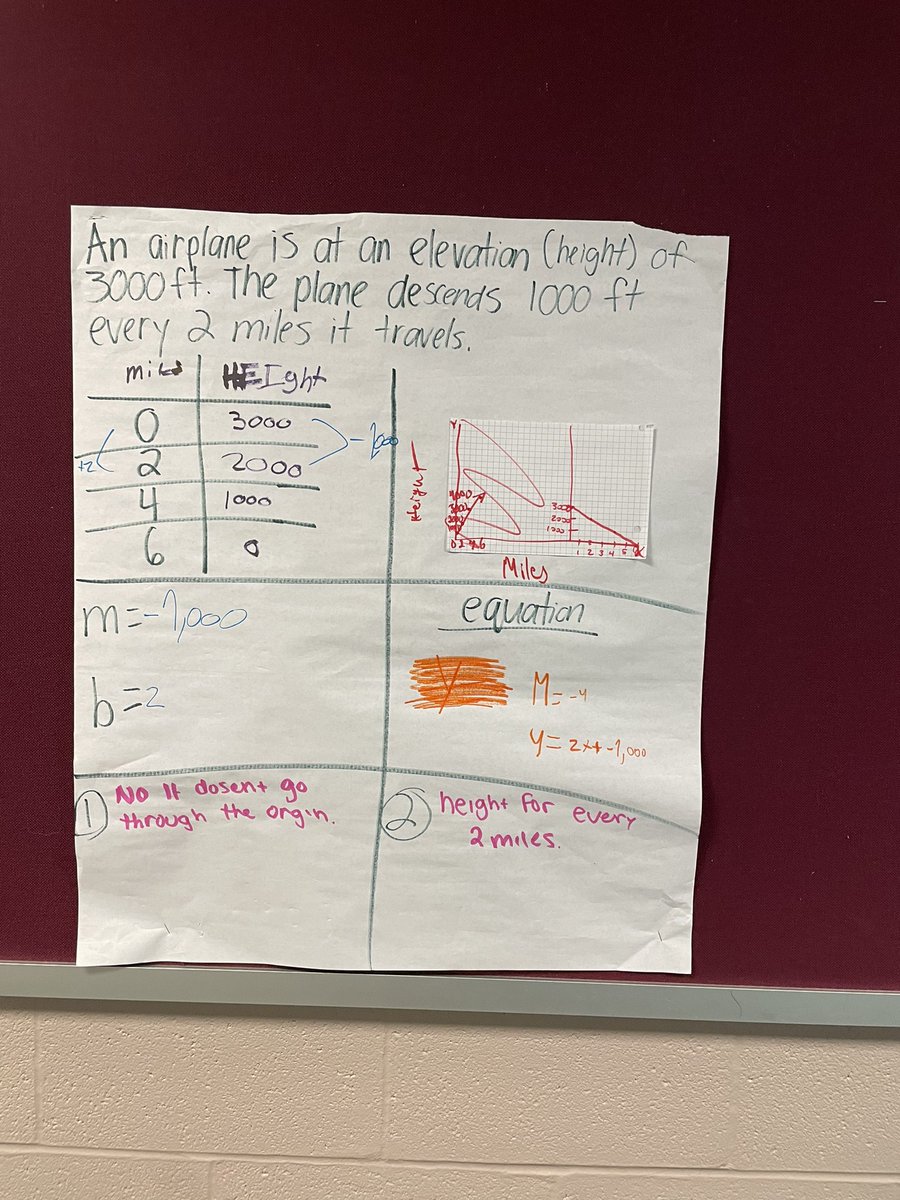 An airplane is at an elevation (height) of
3000 ft. The plane descends 1000 ft
every 2 miles it travels.
miles HEIght
0 3000
+2 -1,000
2 2000
4 1000
6 0
Y
Height
4000
3000
2000
0 2 4 6
3000
2000
1000
1 2 3 4 5 6 X
Miles
m=-1,000
b=2
equation
Y
M=-4
y= 2x+-1,000
1 No It dosent go
through the orgin.
2 height for every
2 miles.